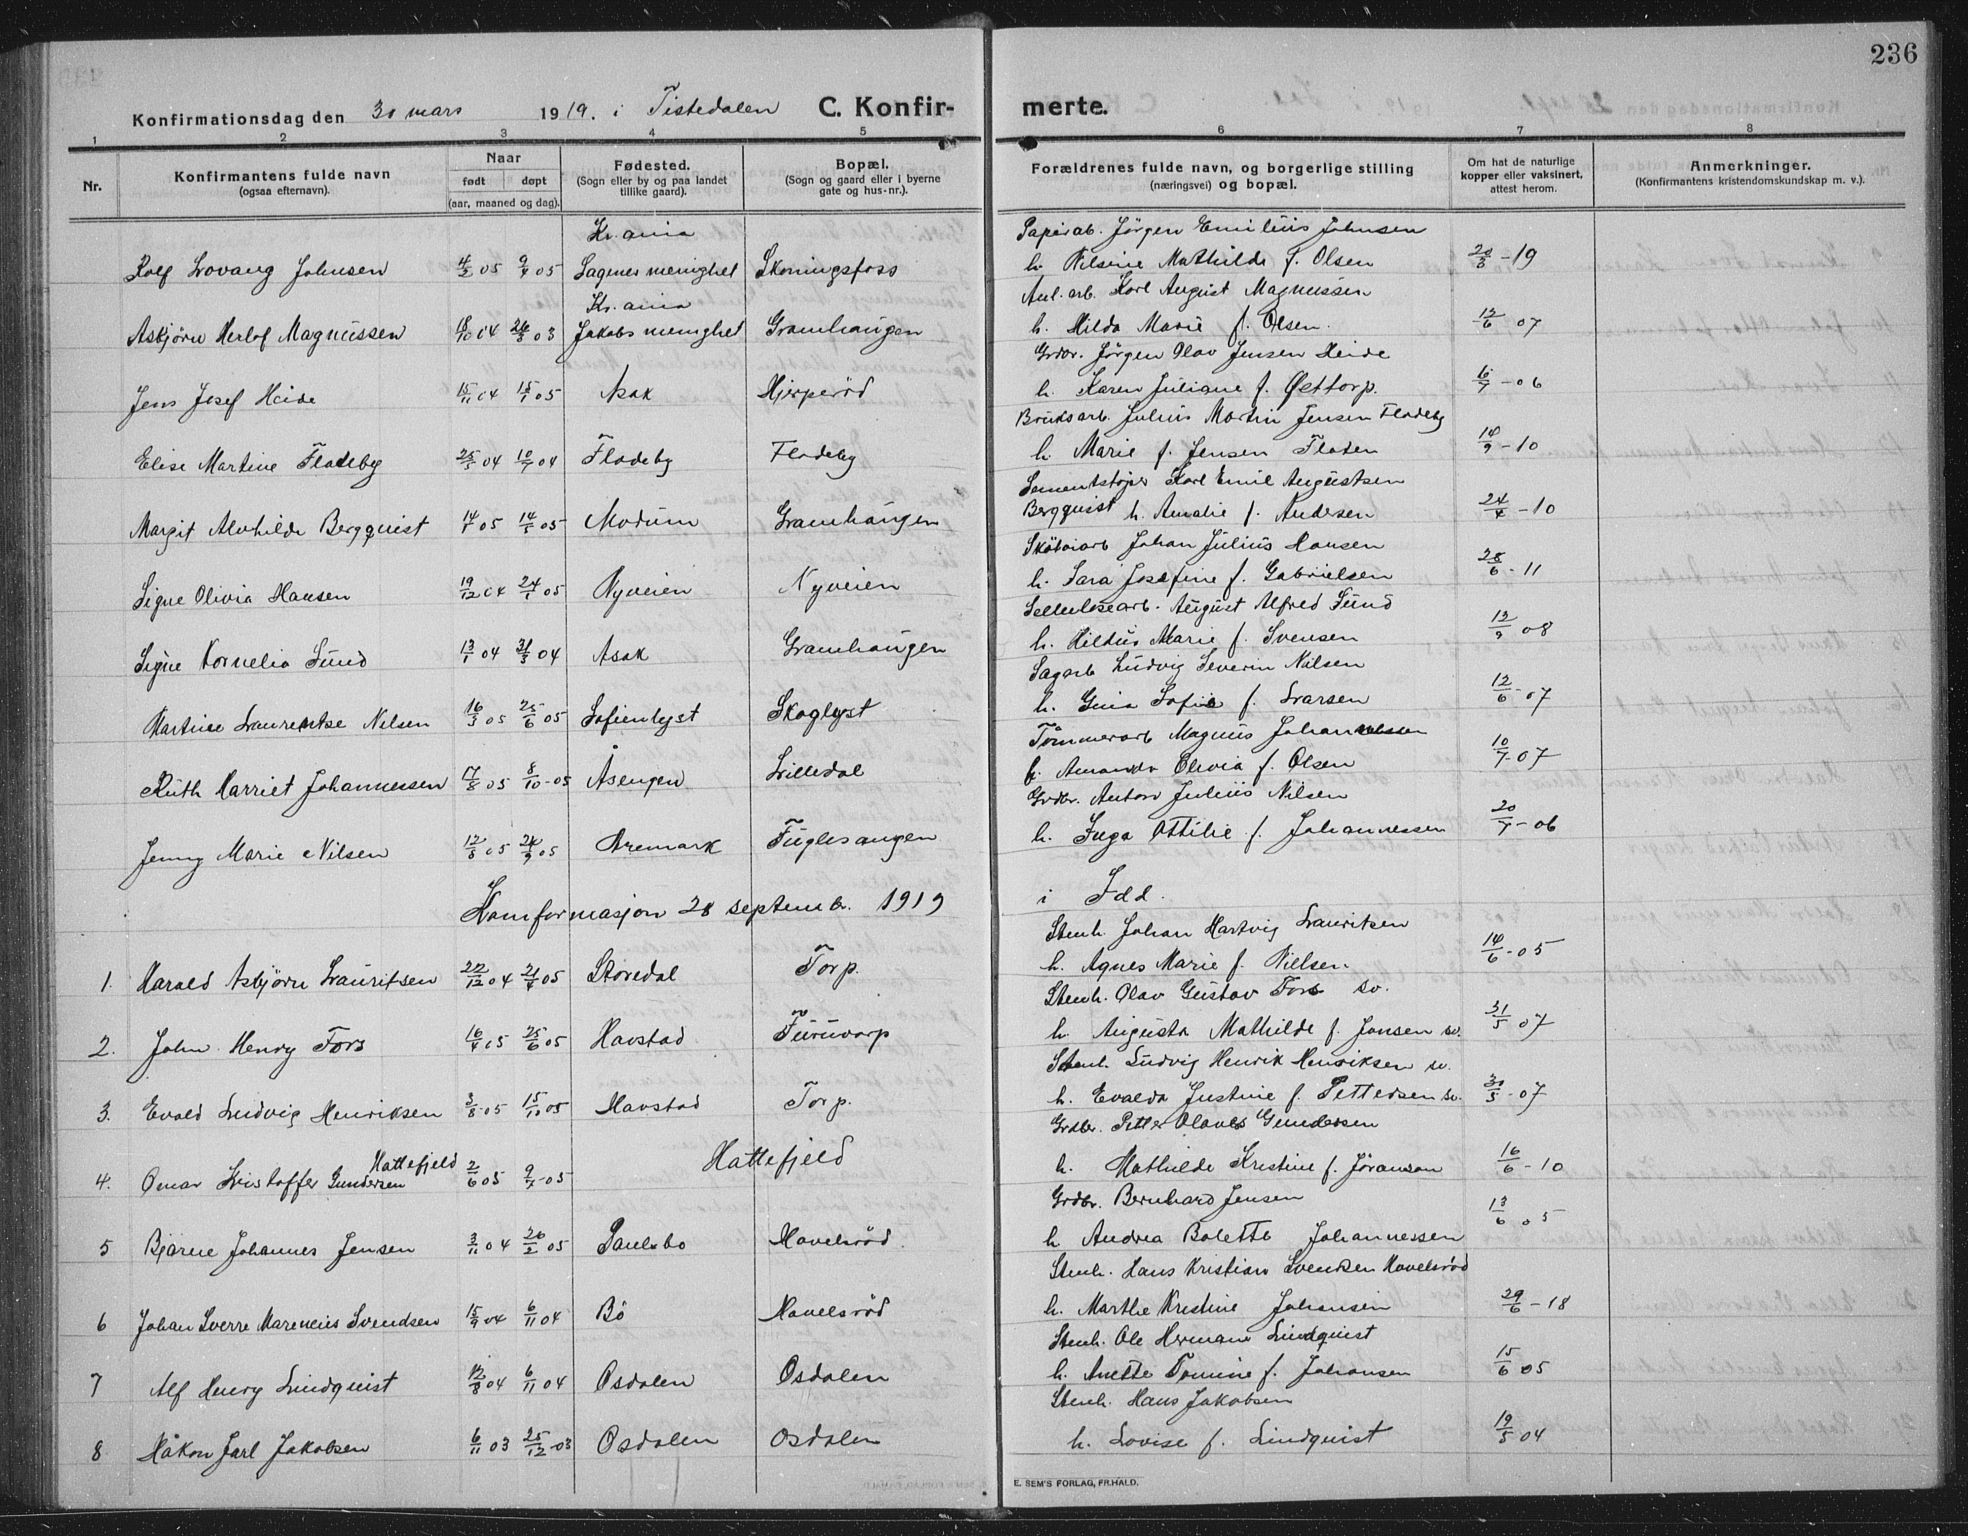 236
Konfirmationsdag den 30 mars 1919. i Tistedalen C. Konfirmerte.
1 2 3 4 5 6 7 8
Nr. Konfirmantens fulde navn (ogsaa efternavn). Naar født døpt (aar, maaned og dag). Fødested. (Sogn eller by og paa landet tillike gaard). Bopæl. (Sogn og gaard eller i byerne gate og hus-nr.). Forældrenes fulde navn, og borgerlige stilling (næringsvei) og bopæl. Om hat de naturlige kopper eller vaksinert, attest herom. Anmerkninger. (Konfirmantens kristendomskundskap m. v.).
Kr.ania Papirarb. Jörgen Emilius Johnsen
Rolf Lovang Johnsen 4/2 05 9/4 05 Sagenes menighet Skoningsfoss h. Nilsine Mathilde f. Olsen 20/3 - 19
Kr.ania Anl. arb. Karl August Magnussen
Asbjörn Herlof Magnussen 18/10 04 26/3 03 Jakobs menighet Gramhaugen h. Hilda Marie f. Olsen. 12/6 07
Grdbr. Jörgen Olav Jensen Heide
Jens Josef Heide 15/11 04 15/1 05 Asak Hjerperöd h. Karen Juliane f. Östtorp. 6/7 - 06
Bruksarb. Julius Martin Jensen Flodeby
Elise Martine Flodeby 25/5 04 10/7 04 Flodeby Flodeby h. Marie f. Jensen Floden 14/9 - 10
Sementstöper Karl Emil Augustsen
Margit Alvhilde Bergquist 14/4 05 14/5 05 Modum Gramhaugen Bergquist h. Amalie f. Andersen 24/4 - 10
Skötöiarb Johan Julius Hansen
Signe Olivia Hansen 19/12 04 24/1 05 Nyveien Nyveien h. Sara Josefine f. Gabrielsen 28/6 - 11
Sellulosearb. August Alfred Lund
Signe Kornelia Lund 13/1 04 31/3 04 Asak Gramhaugen h. Hildus Marie f. Svensen 12/9 08
Sagarb Ludvig Severin Nilsen
Martine Laurentse Nilsen 16/3 05 25/6 05 Sofienlyst Skoglyst h. Gina Sofie f. Larsen 12/6 - 07
Tömmerarb Magnus Johannessen
Ruth Harriet Johannessen 17/8 05 8/10 - 05 Åsengen Lilledal h. Amanda Elivia f. Olsen 10/7 - 07
Grdbr. Anton Julius Nilsen
Jenny Marie Nilsen 12/8 05 24/9 05 Aremark Fuglesangen h. Inga Ottilie f. Johannessen 20/7 - 06
Komformasjon 28 septemb. 1919 i Idd.
Stenh. Johan Hartvig Lauritsen
1. Harald Asbjörn Lauritsen 22/12 04 21/4 05 Storedal Torp. h. Agnes Marie f. Nilsen. 14/6 - 05
Stenh. Olav Gustav Fors sv.
2. John Henry Fors 16/4 05 25/6 05 Havstad Furuvarp h. Augusta Mathilde f. Jonsen sv. 31/5 07
Stenh. Ludvig Henrik Henriksen sv.
3. Evald Ludvig Henriksen 3/8 - 05 15/10 05 Havstad Torp. h. Evalda Justine f. Pettersen sv. 30/5 - 07
Grdbr. Petter Olaves Gundersen
4. Omar Kristoffer Gundersen Hattefjeld 2/6 05 9/7 - 05 Hattefjeld h. Mathilde Kristine f. Jöranson 16/6 - 10
Grdbr. Bernhard Jensen
5 Bjarne Johannes Jensen 3/11 04 26/2 05 Paulsbo Havelsröd. h Andrea Bolette Johannessen 13/6 05
Stenh. Hans Kristian Svendsen Havelsröd
6 Johan Sverre Marencius Svendsen 15/9 04 6/11 04 Bö Havelsröd h. Marthe Kristine Johansen 29/6 - 18
Stenh. Ole Herman Lindquist
7 Alf Henry Lindquist 12/8 04 6/11 04 Osdalen Osdalen h. Anette Tomine f. Johansen 15/6 05
Stenh. Hans Jakobsen
8 Håkon Jarl Jakobsen 6/11 03 25/12 - 03 Osdalen Osdalen h. Lovise f. Lindquist 19/5 04
E. SEM'S FORLAG, FR.HALD.